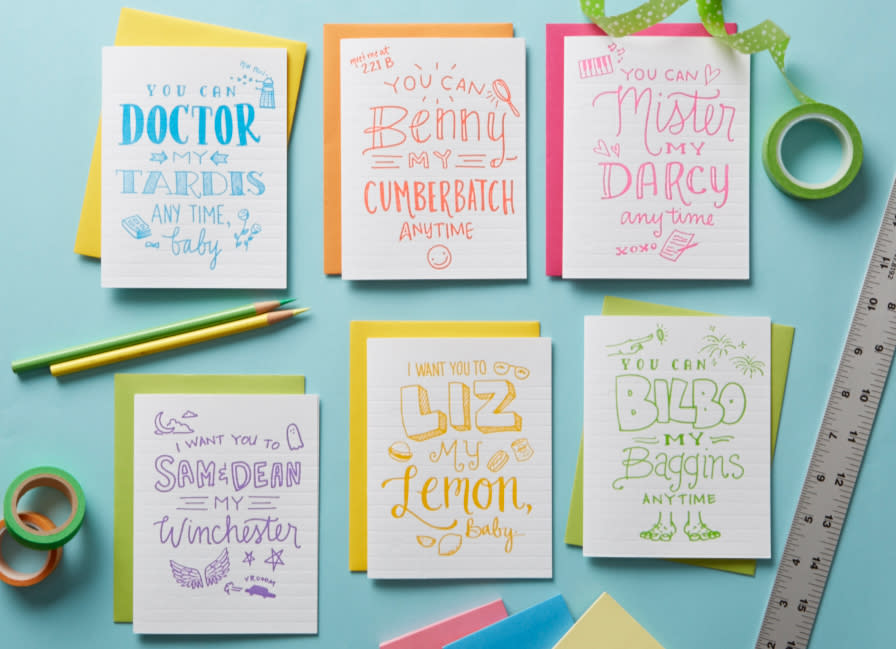 YOU CAN
DOCTOR
MY
TARDIS
ANY TIME,
baby
meet me at
221 B
YOU CAN
Benny
MY
CUMBERBATCH
ANYTIME
YOU CAN
Mister
MY
DARCY
anytime
xoxo
I WANT YOU TO
SAM & DEAN
MY
Winchester
VROOOM
I WANT YOU TO
LIZ
MY
Lemon,
Baby
YOU CAN
BILBO
MY
Baggins
ANYTIME